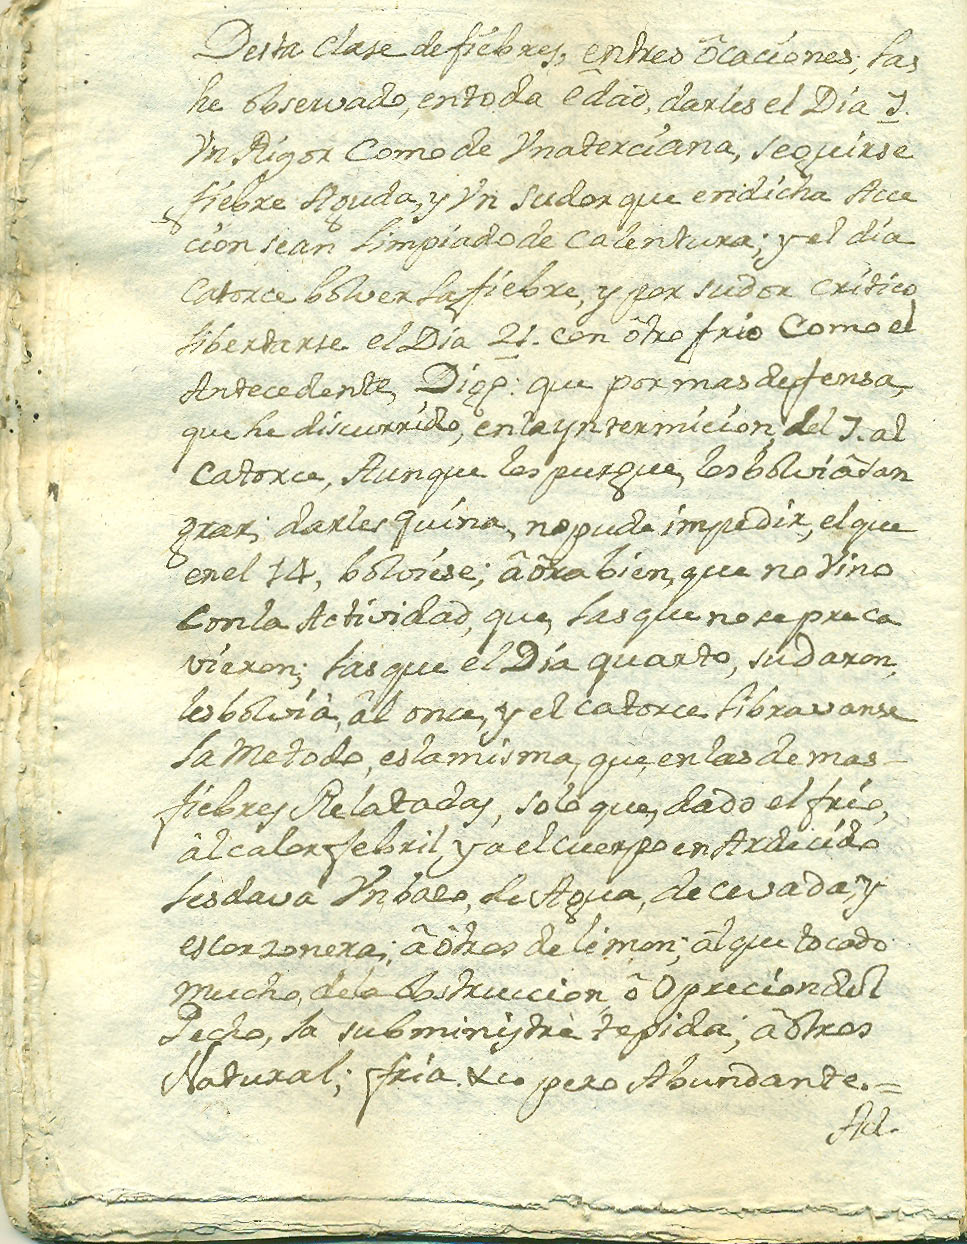 Desta clase de fiebres, en tres ôcaciones, las
he observado, en toda edad, darles el Dia 7.
Vn Rigor Como de Vna terciana, seguirse
fiebre Aguda, y Vn sudor que en dicha Acce
cion sean limpiado de calentura; y el dia
catorce bolver la fiebre, y por sudor critico
libertarse el Dia 21. con ôtro frio Como el
Antecedente, Digo: que por mas defensa,
que he discurrido, en la yntermicion, del 7. al
catorce, Aunque los purgue, los bolvi â san
grar; darles quina, no pude impedir, el que
en el 14, bolviese; âôra bien, que no Vino
con la Actividad, que, las que no se preca
vieron; las que el Dia quarto, sudaron,
les bolvià, âl once, y el catorce libravanse
la Metodo, es la misma, que, en las de mas
fiebres Relatadas, solo que, dado el frio,
âl calor febril, y a el cuerpo en Ardecido
les dava Vn baso, de Agua, de cevada, y
escorzonera; â ôtros de limon; âl que tocado
mucho, de la obstruccion, ô Oprecion del
Pecho, la subministrè tepida; â ôtros
Natural; fria &c pero Abundante.=
Ad.